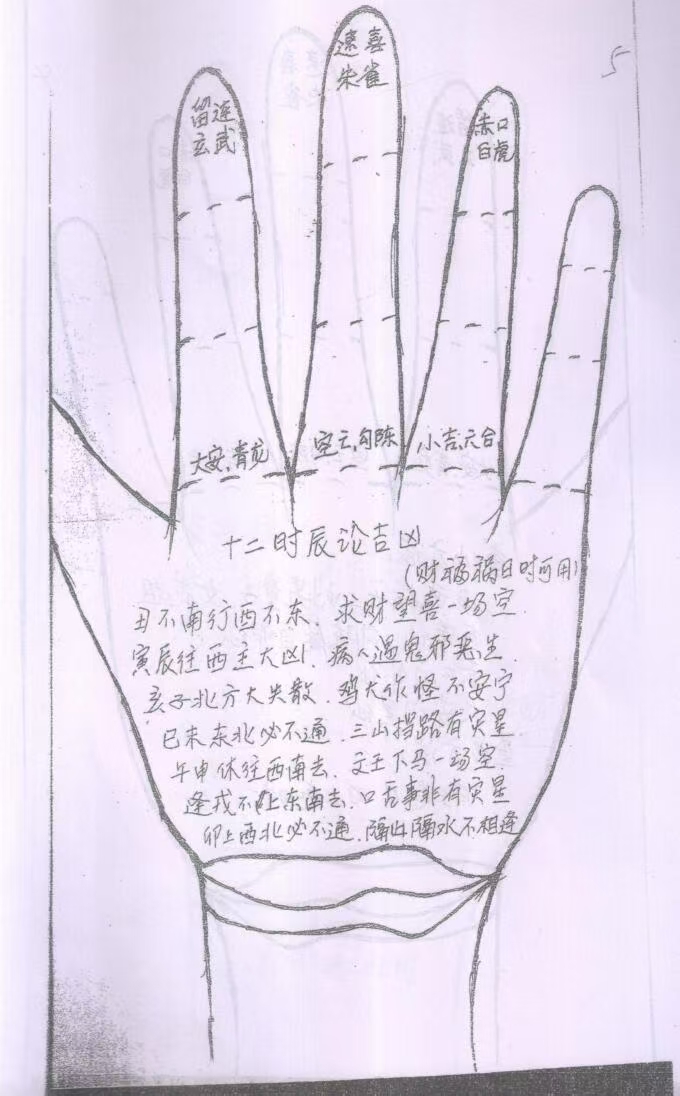 5
速喜
朱雀
留连
玄武
赤口
白虎
大安,青龙
空亡,勾陈
小吉,六合
十二时辰论吉凶
(财福祸日时可用)
丑不南行酉不东、求财望喜一场空
寅辰往西主大凶、病人遇鬼邪恶生
亥子北方大失散、鸡犬作怪不安宁
巳未东北必不通、三山挡路有灾星
午申休往西南去、文王下马一场空
逢戌不上东南去、口舌事非有灾星
卯上西北必不通、隔山隔水不相逢